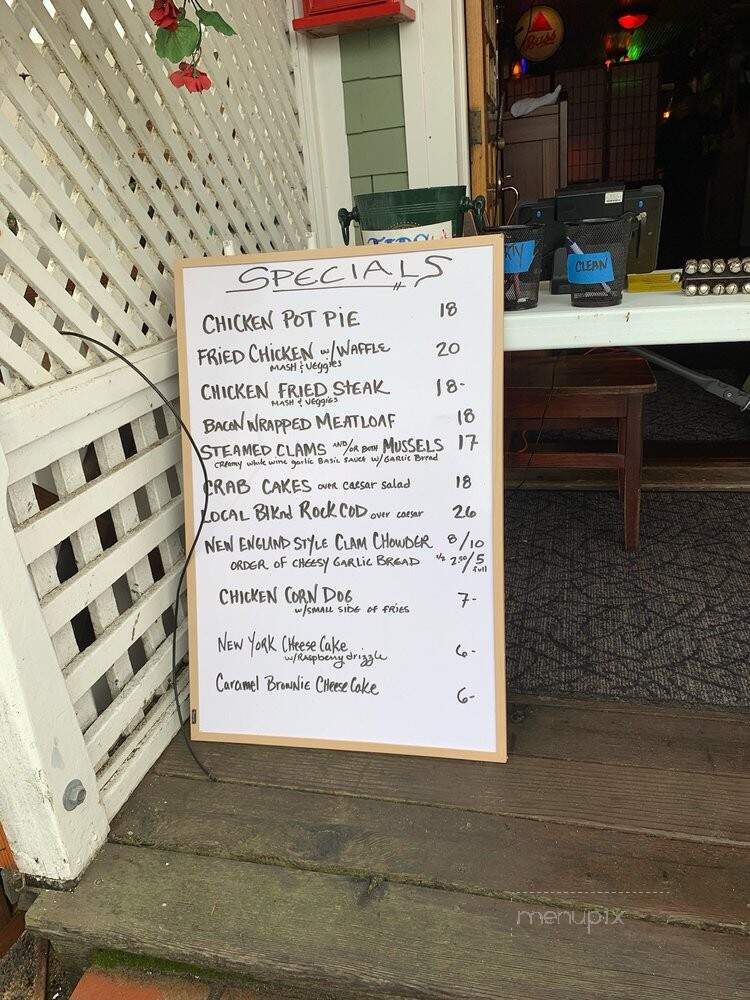 Bass
TIPS
DIRTY
CLEAN
SPECIALS
CHICKEN POT PIE 18
FRIED CHICKEN w/ WAFFLE 20
MASH & VEGGIES
CHICKEN FRIED STEAK 18-
MASH & VEGGIES
BACON WRAPPED MEATLOAF 18
STEAMED CLAMS AND/OR BOTH MUSSELS 17
CREAMY white wine garlic BASIL SAUCE w/GARLIC BREAD
CRAB CAKES over caesar salad 18
LOCAL Blknd ROCK COD over caesar 26
NEW ENGLAND STYLE CLAM CHOWDER 8/10
ORDER OF CHEESY GARLIC BREAD ½ 2.50/5 full
CHICKEN CORN DOG 7-
w/SMALL SIDE OF FRIES
NEW YORK CHEESE CAKE 6-
w/Raspberry drizzle
Caramel BROWNIE CHEESE CAKE 6-
menupix